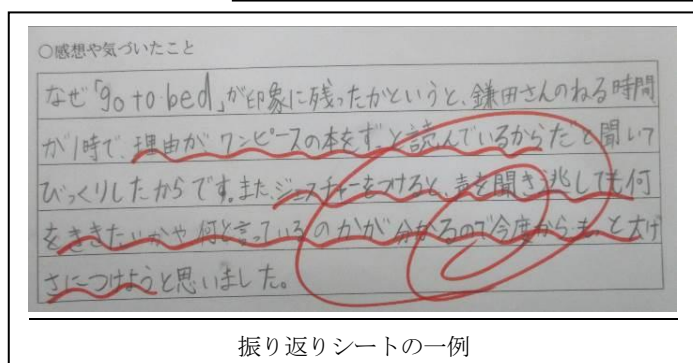 ○感想や気づいたこと
なぜ「go to bed」が印象に残ったかというと、鎌田さんのねる時間
が1時で、理由がワンピースの本をずっと読んでいるからだと聞いて
びっくりしたからです。また、ジェスチャーをつけると、声を聞き逃しても何
をききたいかや何と言っているのかが分かるので今度からもっと大げ
さにつけようと思いました。
振り返りシートの一例